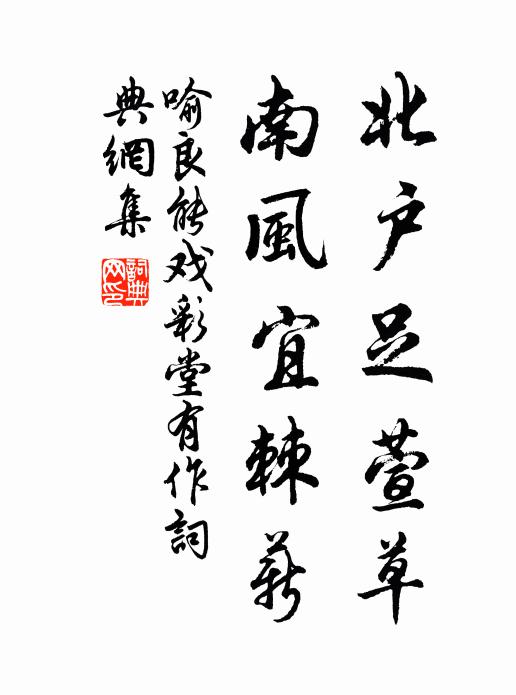 北户足萱草
南風宜棘薪
喻良能戏彩堂有作詞
典網集
詞典
网印